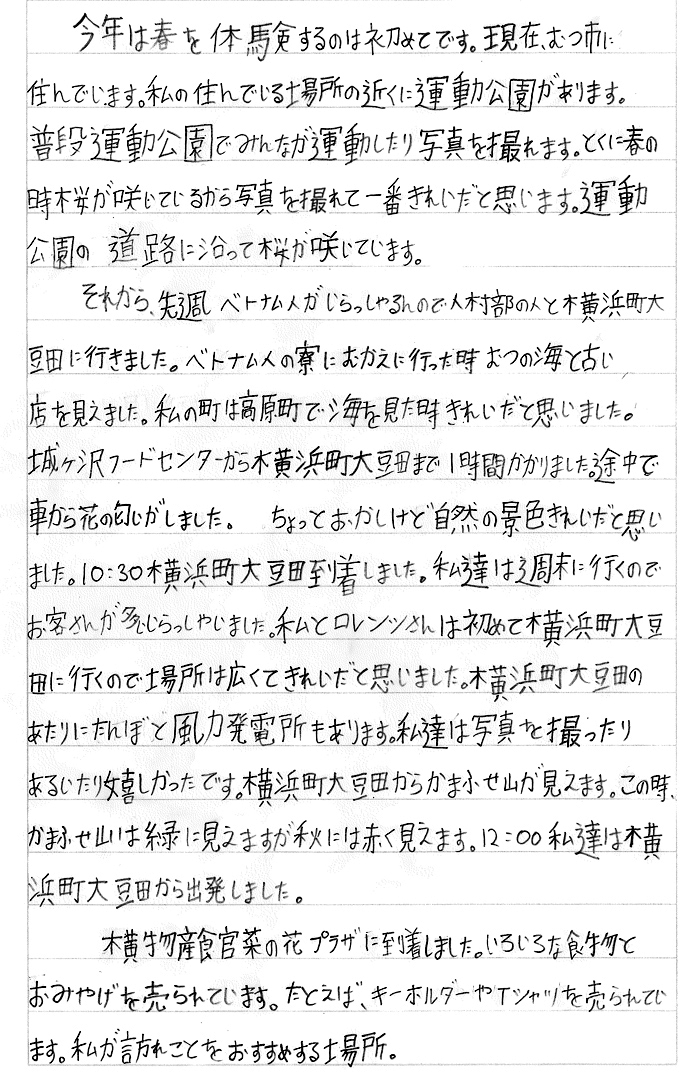 今年は春を体験するのは初めてです。現在、むつ市に
住んでいます。私の住んでいる場所の近くに運動公園があります。
普段運動公園でみんなが運動したり写真を撮れます。とくに春の
時桜が咲いているから写真を撮れて一番きれいだと思います。運動
公園の道路に沿って桜が咲いています。
それから、先週ベトナム人がいらっしゃるんので人材部の人と横浜町大
豆田に行きました。ベトナム人の寮にむかえに行った時むつの海と古い
店を見えました。私の町は高原町で海を見た時きれいだと思いました。
城ヶ沢フードセンターから横浜町大豆田まで1時間かかりました。途中で
車から花の匂いがしました。ちょっとおかしけど自然の景色きれいだと思い
ました。10:30横浜町大豆田到着しました。私達は週末に行くので
お客さんが多いらっしゃいました。私とロレンツさんは初めて横浜町大豆
田に行くので場所は広くてきれいだと思いました。横浜町大豆田の
あたりにたんぼと風力発電所もあります。私達は写真を撮ったり
あるいたり嬉しかったです。横浜町大豆田からかまふせ山が見えます。この時、
かまふせ山は緑に見えますが秋には赤く見えます。12:00私達は横
浜町大豆田から出発しました。
横物産食官菜の花プラザに到着しました。いろいろな食物と
おみやげを売られています。たとえば、キーホルダーやTシャツを売られてい
ます。私が訪れことをおすすめする場所。